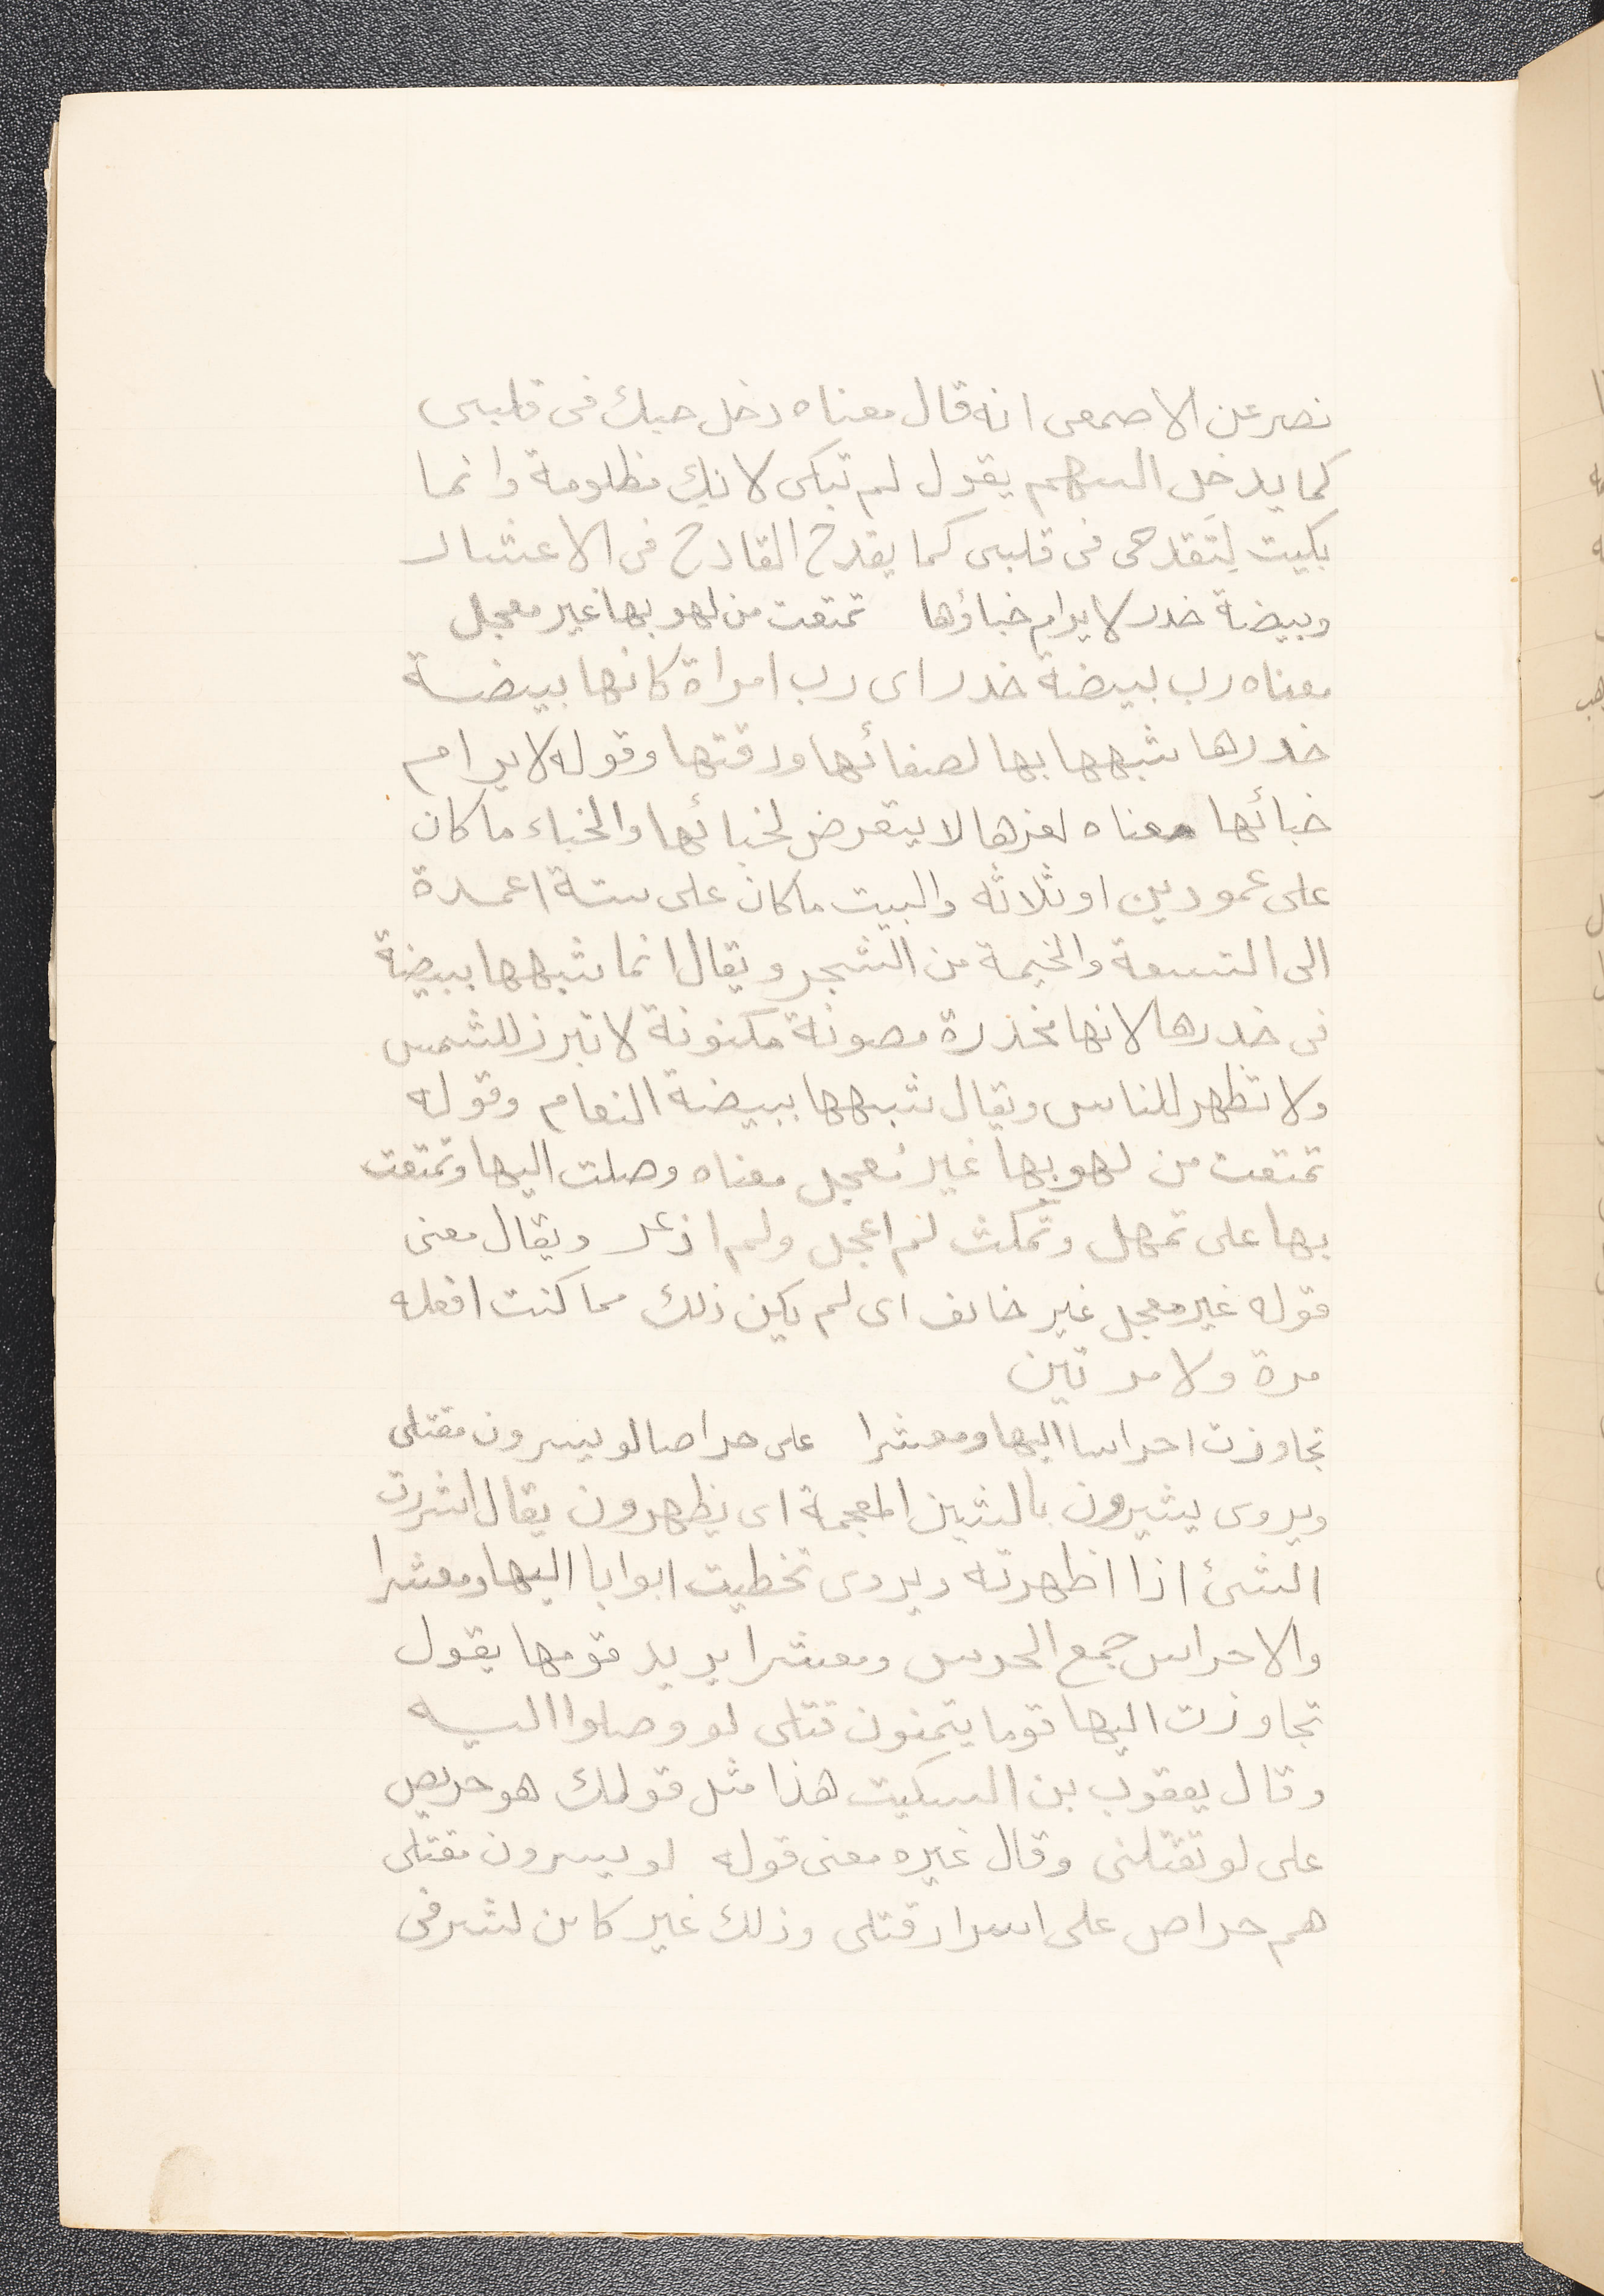 نصر عن الاصمعى انه قال معناه دخل حبك فى قلبى
كما يدخل السهم يقول لم تبكى لانك مظلومة وانما
بكيت لتقدحى فى قلبى كما يقدح القادح فى الاعشار
وبيضة خدر لا يرام خباؤها تمتعت من لهو بها غير معجل
معناه رب بيضة خدر اى رب امراة كانها بيضة
خدرها شبهها بها لصفائها ورقتها وقوله لا يرام
خبائها معناه لعزها لا يتعرض لخبائها والخباء ما كان
على عمودين او ثلاثه والبيت ما كان على ستة اعمدة
الى التسعة والخيمة من الشجر ويقال انما شبهها ببيضة
فى خدرها لانها مخدرة مصونة مكنونة لا تبرز للشمس
ولا تظهر للناس ويقال شبهها ببيضة النعام وقوله
تمتعت من لهو بها غير معجل معناه وصلت اليها وتمتعت
بها على تمهل وتمكث لم اعجل ولم اذعر ويقال معنى
قوله غير معجل غير خائف اى لم يكن ذلك مما كنت افعله
مرة ولا مرتين
تجاوزت احراسا اليها ومعشرا على حراصا لو يسرون مقتلى
ويروى يشيرون بالشين المعجمة اى يظهرون يقال اشررت
الشئ اذا اظهرته ويروى تخطيت ابوابا اليها ومعشرا
والاحراس جمع الحرس ومعشرا يريد قومها يقول
تجاوزت اليها قوما يتمنون قتلى لو وصلوا اليه
وقال يعقوب بن السكيت هذا مثل قولك هو حريص
على لو تقتلنى وقال غيره معنى قوله لو يسرون مقتلى
هم حراص على اسرار قتلى وذلك غير كائن لشرفى